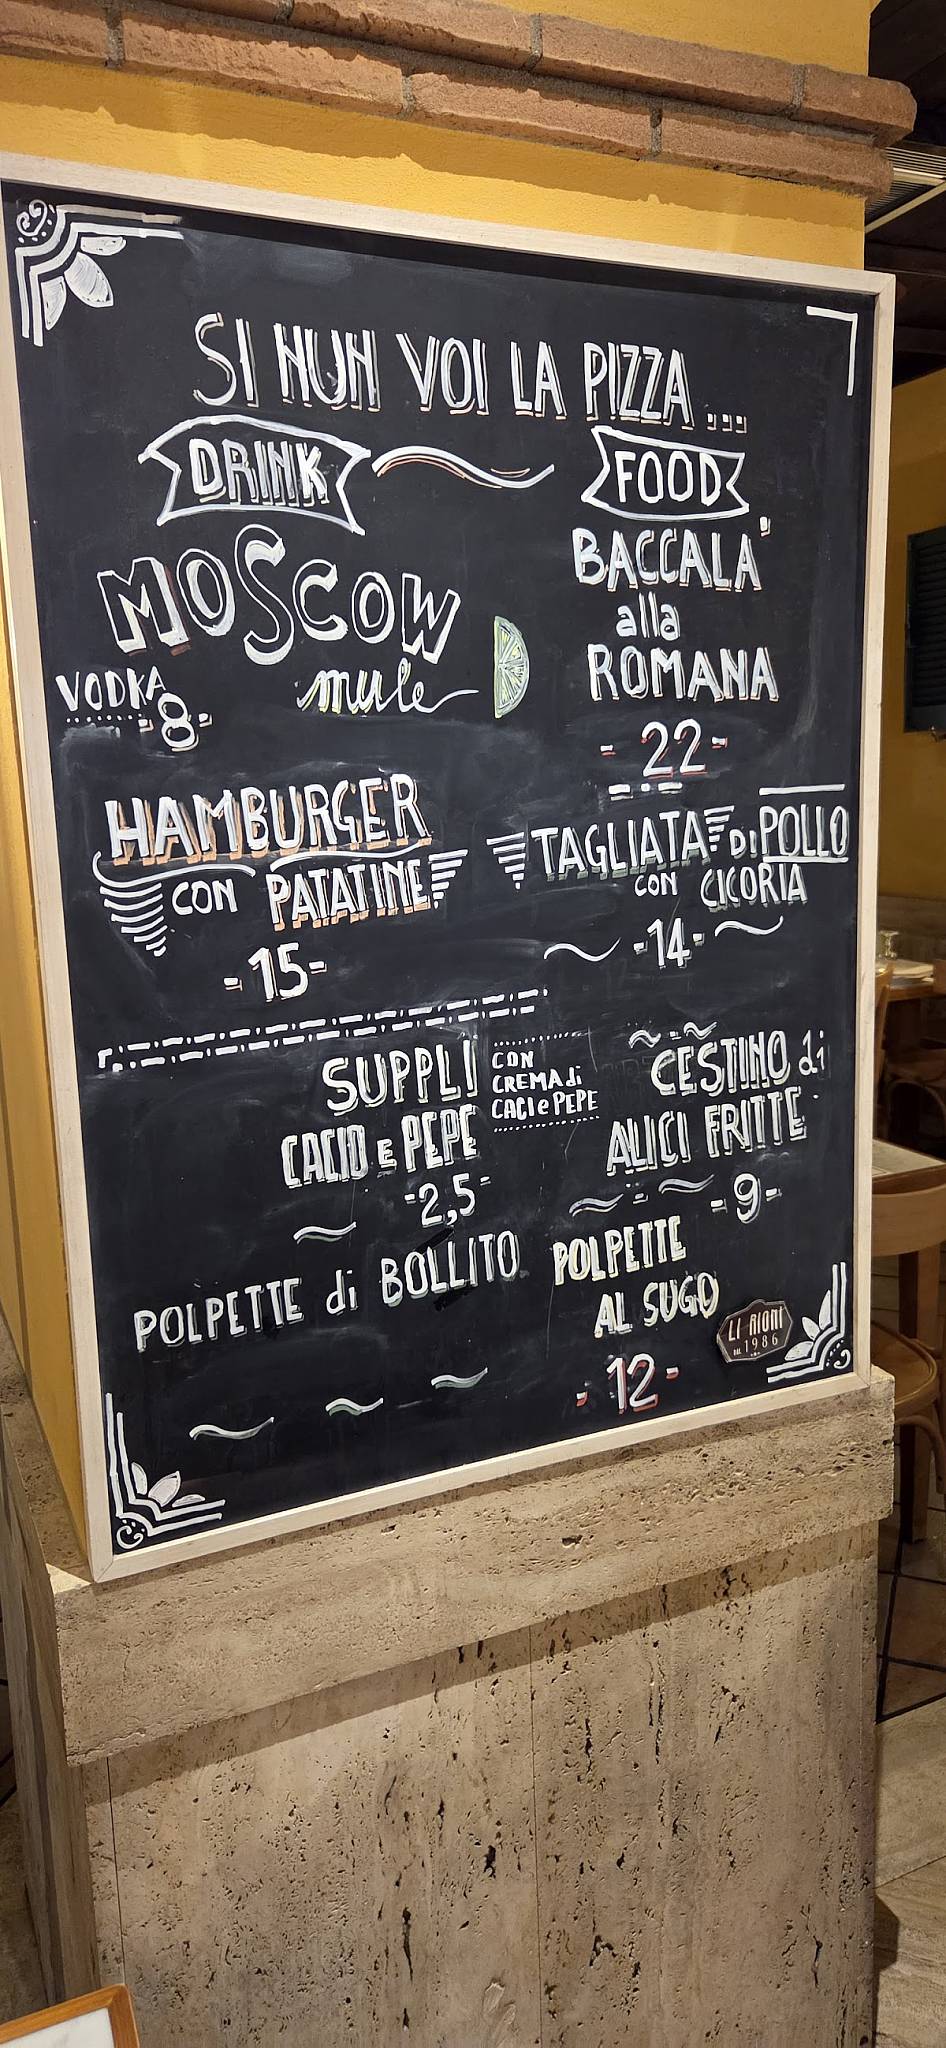 SI NUN VOI LA PIZZA...
DRINK
MOSCOW
mule
VODKA
-8-
HAMBURGER
CON PATATINE
-15-
FOOD
BACCALA'
alla
ROMANA
-22-
TAGLIATA Di POLLO
CON CICORIA
-14-
SUPPLI
CACIO E PEPE
CON
CREMA di
CACI e PEPE
-2,5-
CESTINO di
ALICI FRITTE
-9-
POLPETTE di BOLLITO
POLPETTE
AL SUGO
-12-
LI RIONI
DAL 1986